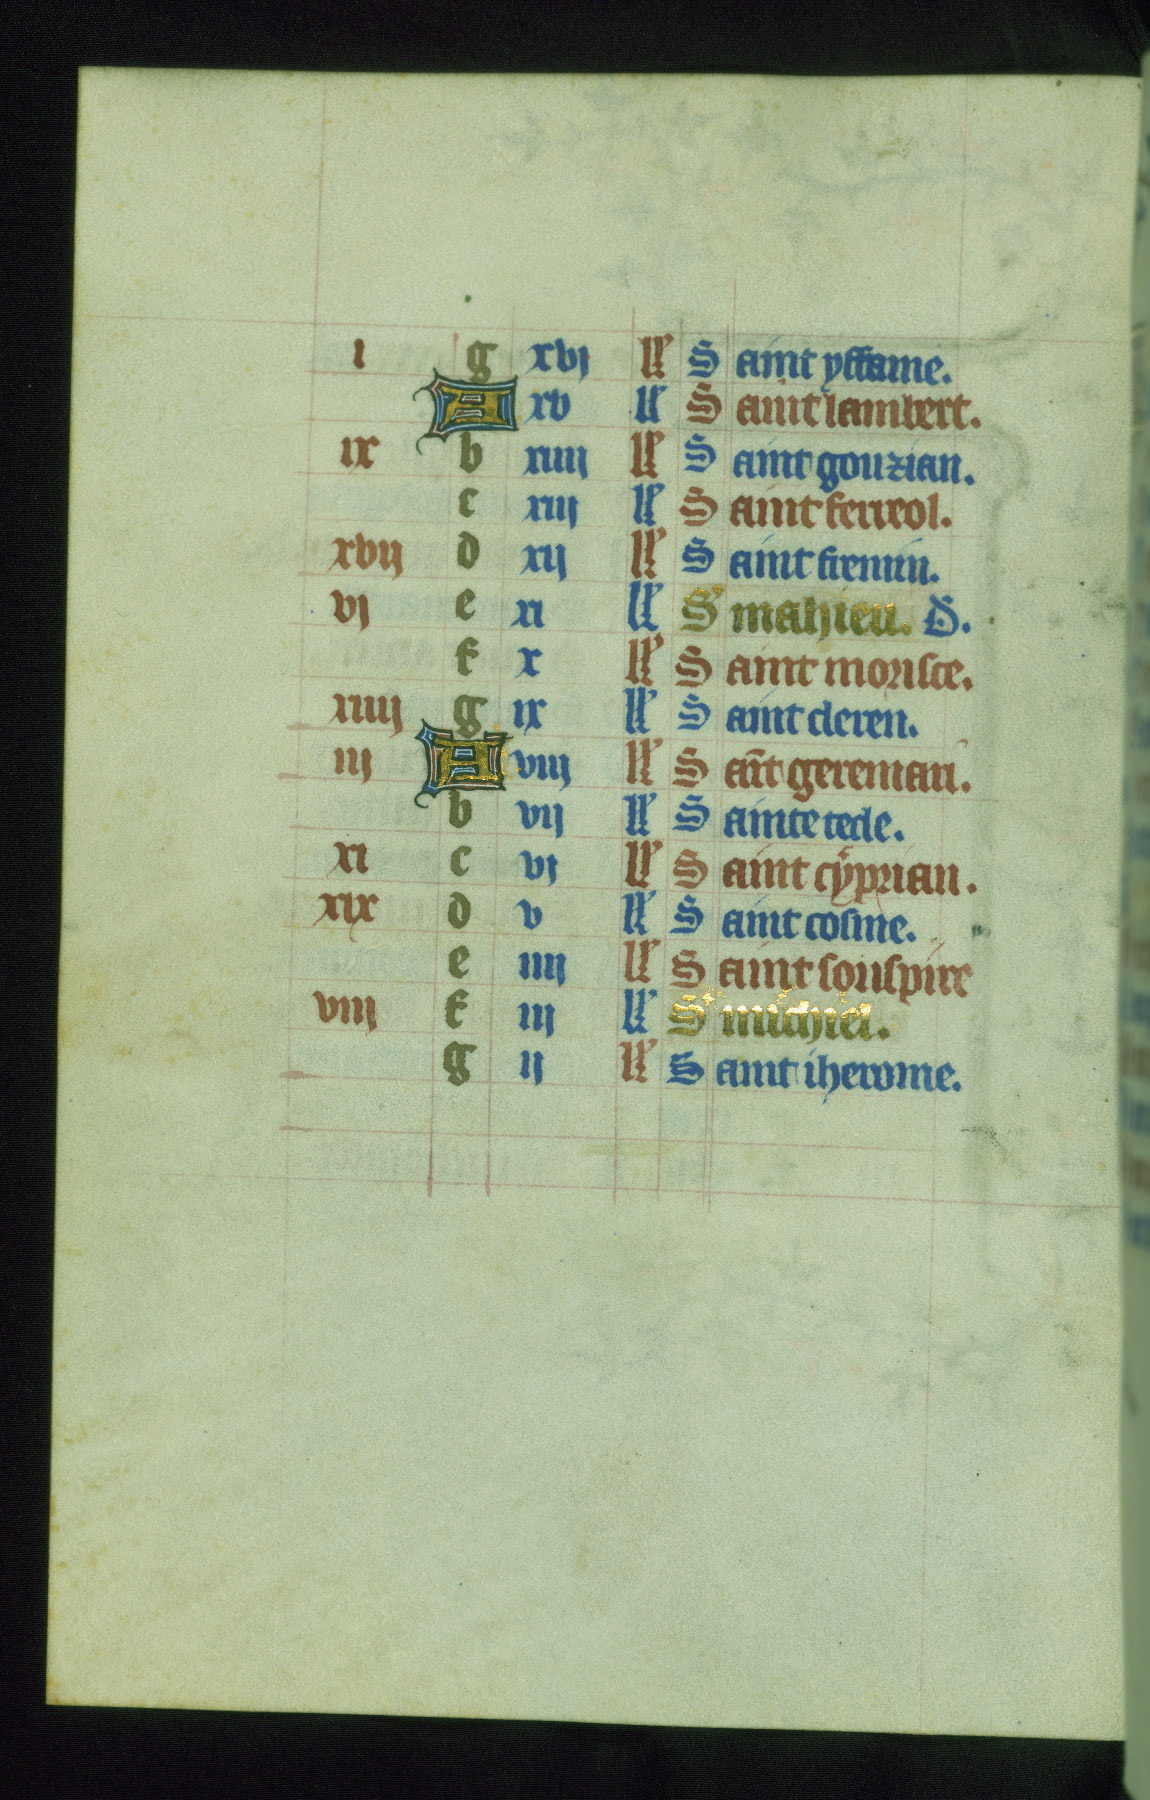 I g xvj kł Saint yffame.
A xv kł Saint lambert.
ix b xiiij kł Saint gouzian.
c xiij kł Saint ferreol.
xvij d xij kł Saint firmin.
vj e xi kł St mahieu. D.
f x kł Saint morisce.
xiiij g ix kł Saint cleren.
iij A viij kł Saīt gereman.
b vij kł Sainte tecle.
xi c vj kł Saint cyprian.
xix d v kł Saint cosme.
e iiij kł Saint souspire
viij f iij kł St michiel.
g ij kł Saint iherome.